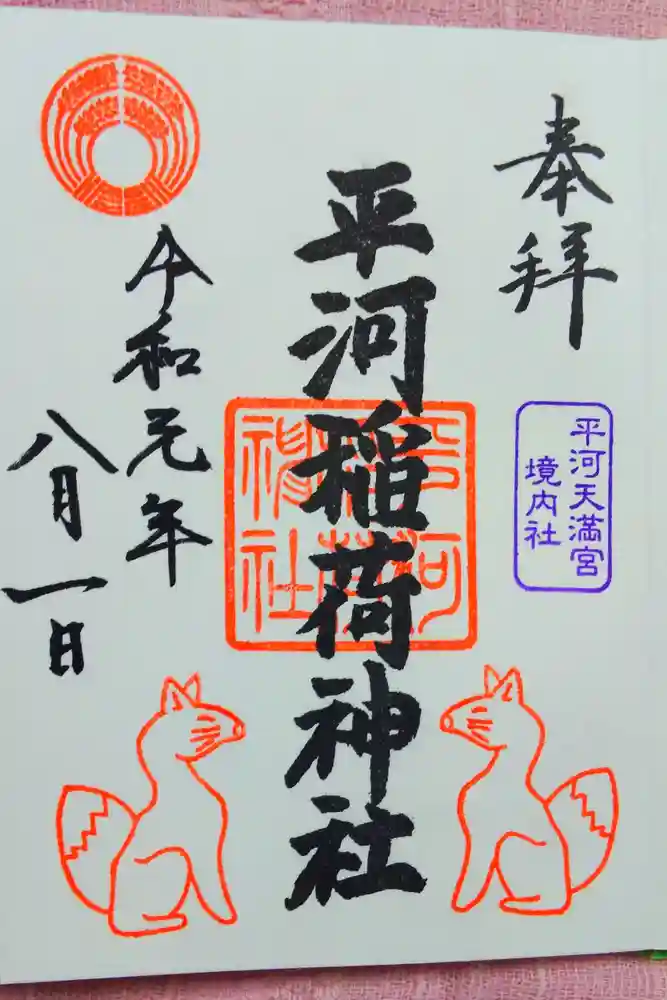 奉拝
平河天満宮
境内社
平河稲荷神社
令和元年
八月一日